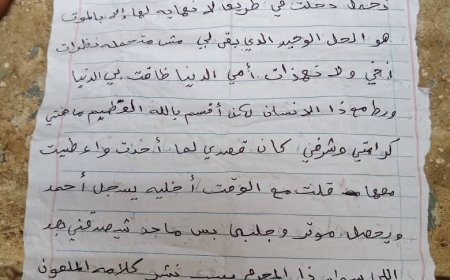 دخلت في طريق لا نهاية لها إلا بالموت
هو الحل الوحيد الذي بقى لي مش متحمله نظرات
أخي ولا نهزات أمي الدنيا ضاقت بي الدنيا
مع ذا الانسان لكن أقسم بالله العظيم ما هنتي
كرامتي وشرفي كان قصدي لما أخذت واعطيت
معها قلت مع الوقت أخليه يسجل أحمد
ويحصل موتر و بس ماحد شيصدقني هد
اللي ذا المجرم نشر كلامه الملعون